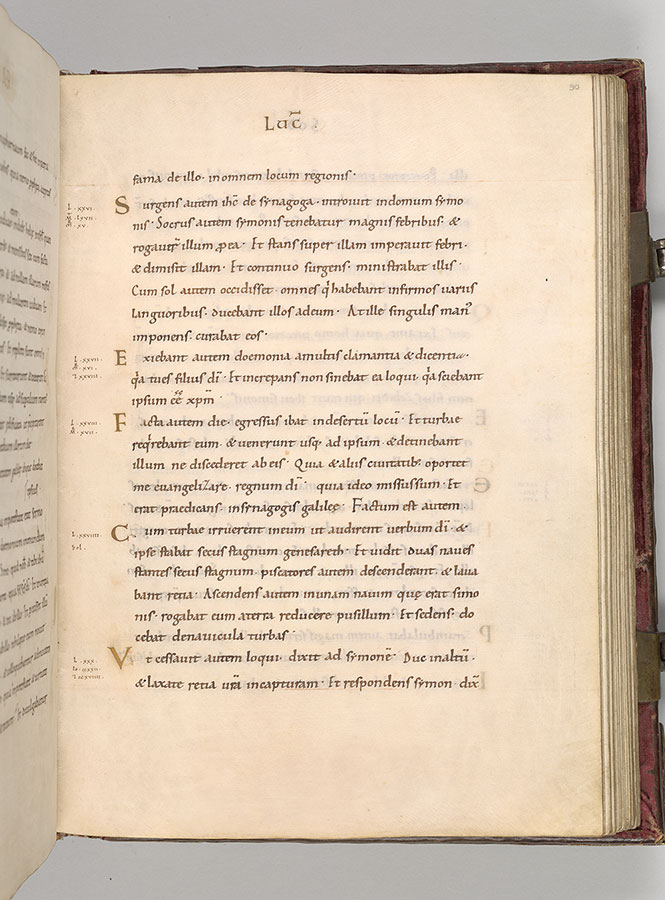 90
Luc̄
fama de illo · in omnem locum regionis ·
Surgens autem ihc̄ de synagoga · introiuit indomum symo
nis · Socrus autem symonis tenebatur magnis febribus · &
rogauer̄ illum ꝓea · Et stans super illam imperauit febri ·
& dimisit illam · Et continuo surgens · ministrabat illis ·
Cum sol autem occidisset · omnes q̇ habebant infirmos uariis
languoribus · ducebant illos adeum · Atille singulis man'
imponens · curabat eos ·
Exiebant autem doemonia amultis clamantia & dicentia ·
q̄a tues filius dī · Et increpans non sinebat ea loqui · q̄a sciebant
ipsum ēē xp̄m ·
Facta autem die · egressus ibat indesertū locū · Et turbae
req̇rebant eum · & uenerunt usq; ad ipsum · & detinebant
illum ne discederet ab eis · Quia & aliis ciuitatib; oportet
me euangelizare · regnum dī · quia ideo missussum · Et
erat praedicans · insynagogis galileę · Factum est autem
Cum turbae irruerent ineum ut audirent uerbum dī · &
ipse stabat secus stagnum genesareth · Et uidit duas naues
stantes secus stagnum · piscatores autem descenderant · & laua
bant retia · Ascendens autem inunam nauim quę erat simo
nis · rogabat eum aterra reducere pusillum · Et sedens · do
cebat denauicula turbas ·
Vt cessauit autem loqui · dixit ad symonē · Duc inaltū ·
& laxate retia ur̄a incapturam · Et respondens symon · dix̄